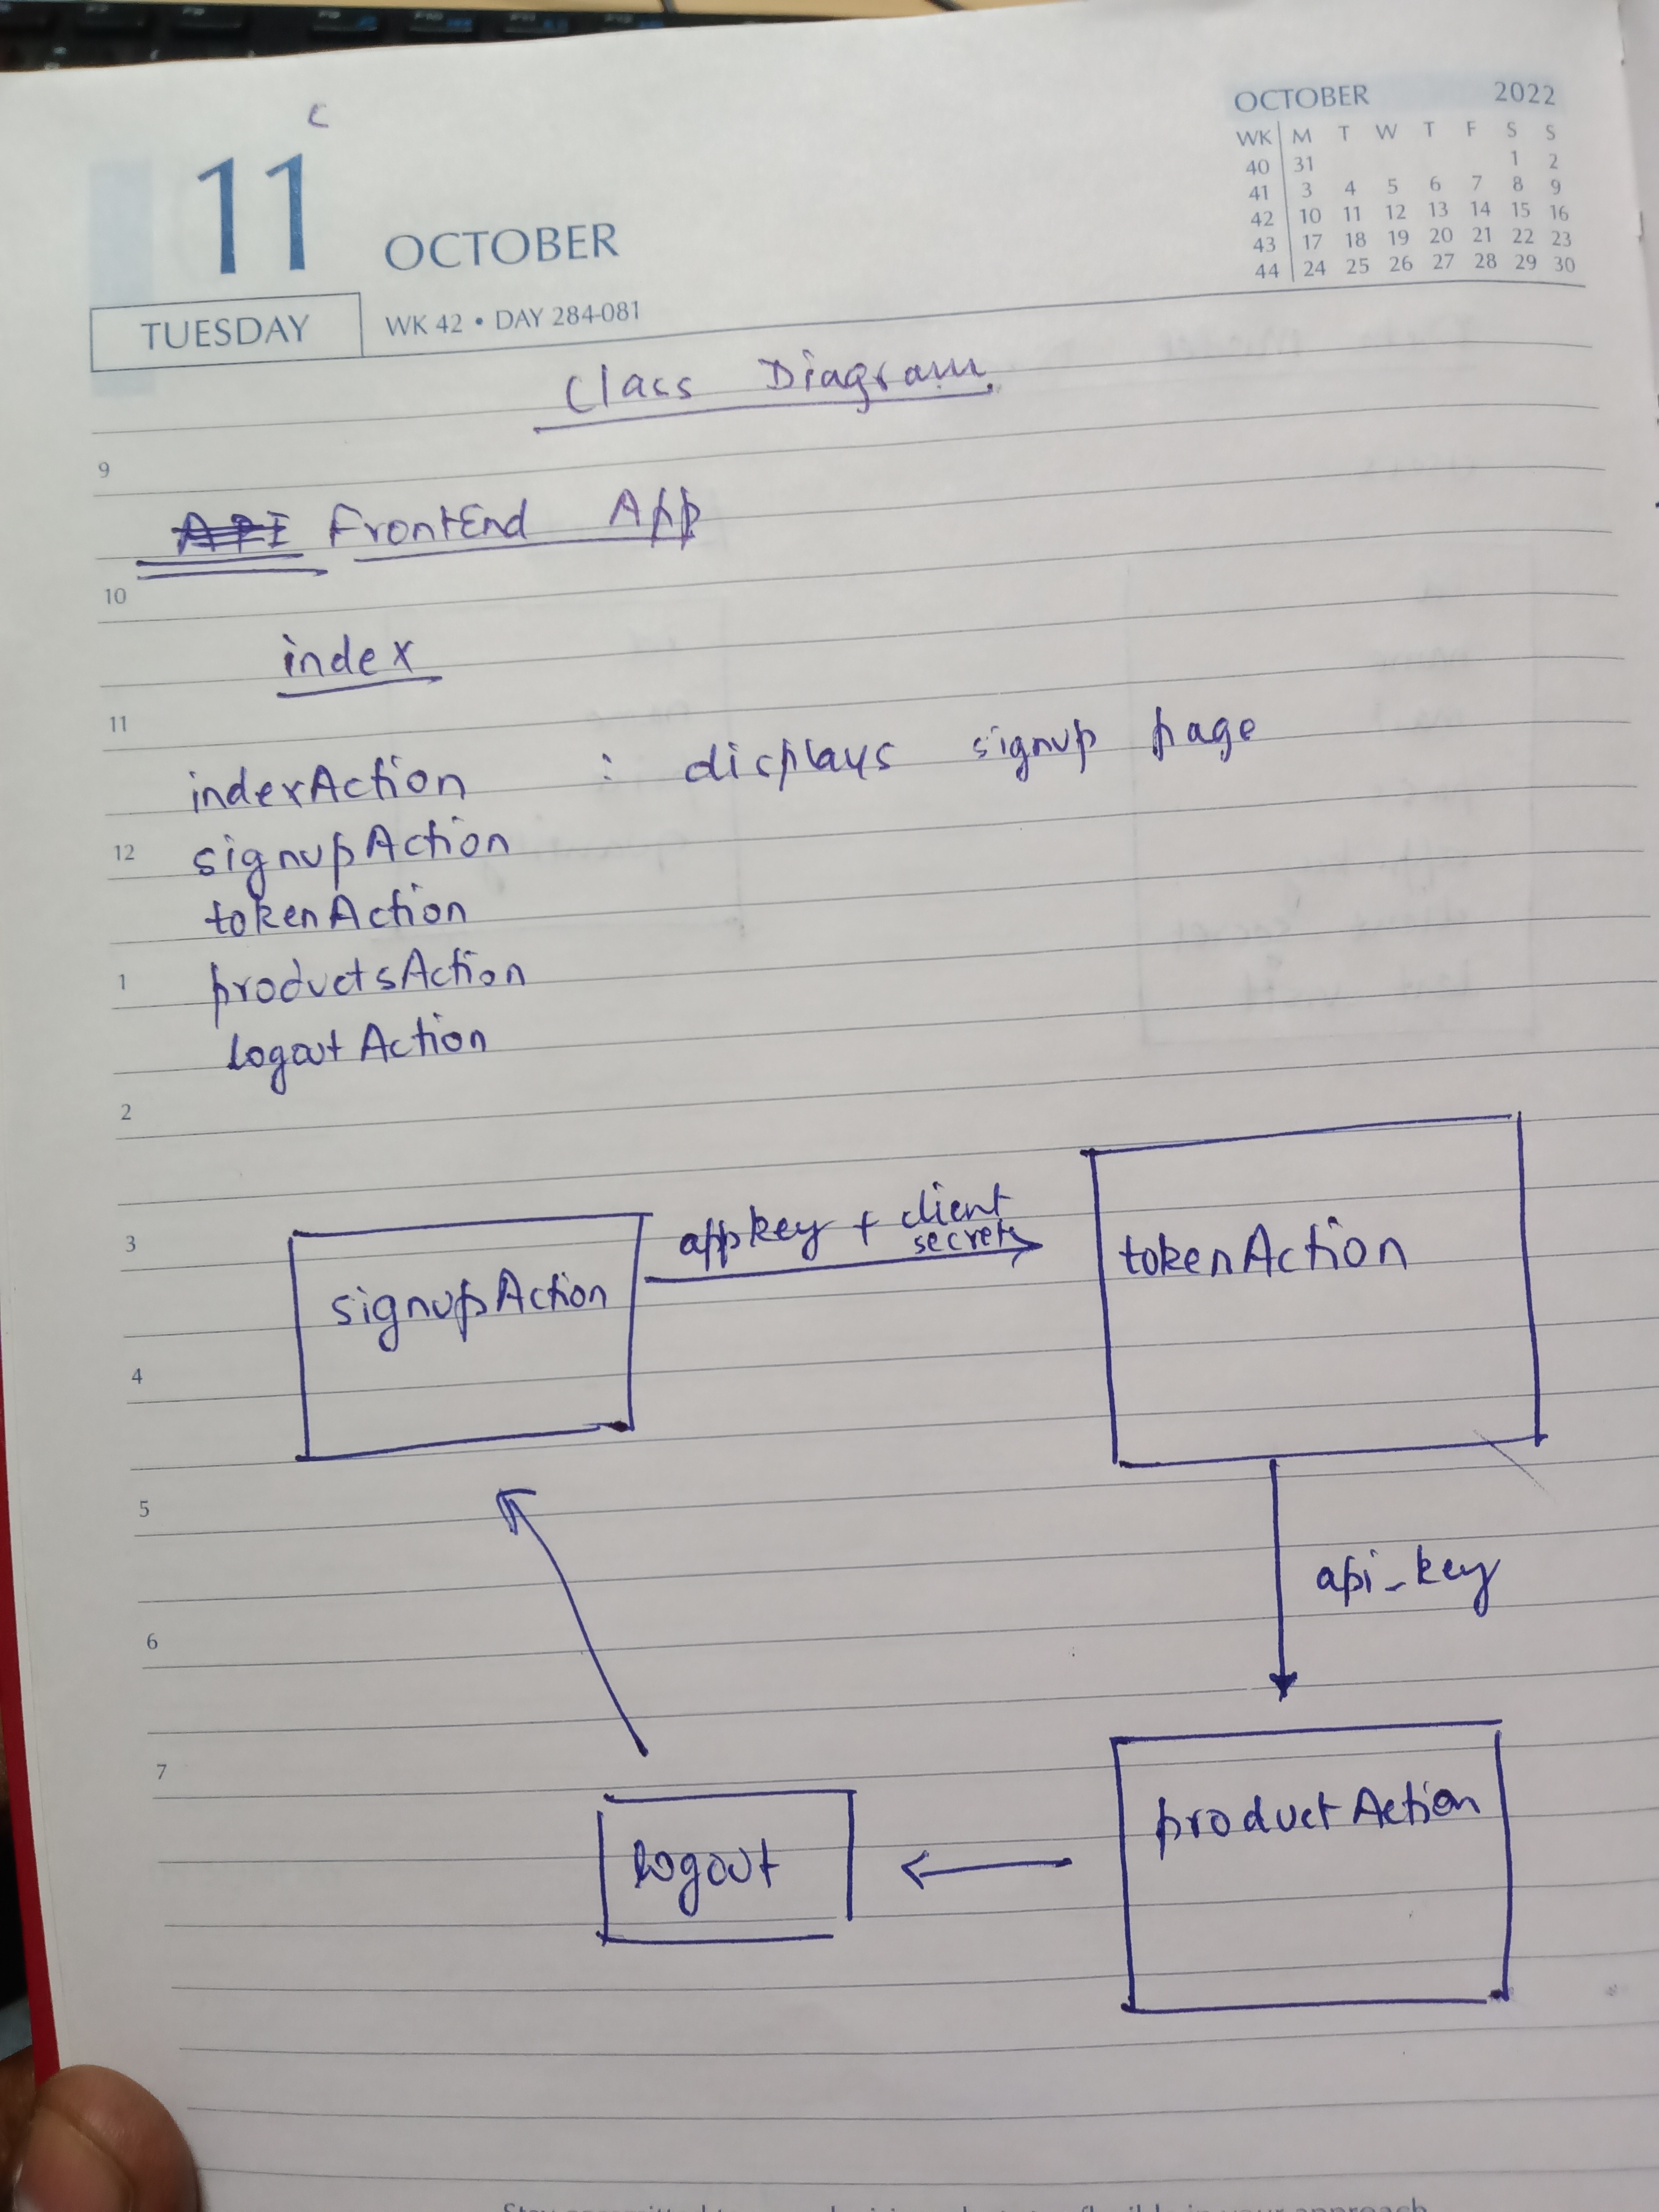 c
11
OCTOBER
TUESDAY
WK 42 • DAY 284-081
OCTOBER 2022
WK M T W T F S S
40 31 1 2
41 3 4 5 6 7 8 9
42 10 11 12 13 14 15 16
43 17 18 19 20 21 22 23
44 24 25 26 27 28 29 30
Class Diagram.
9
API FrontEnd App
10
index
11
indexAction : displays signup page
12
signupAction
tokenAction
1
productsAction
logoutAction
2
3
appkey + client
secret
signupAction
tokenAction
4
5
api_key
6
7
productAction
logout